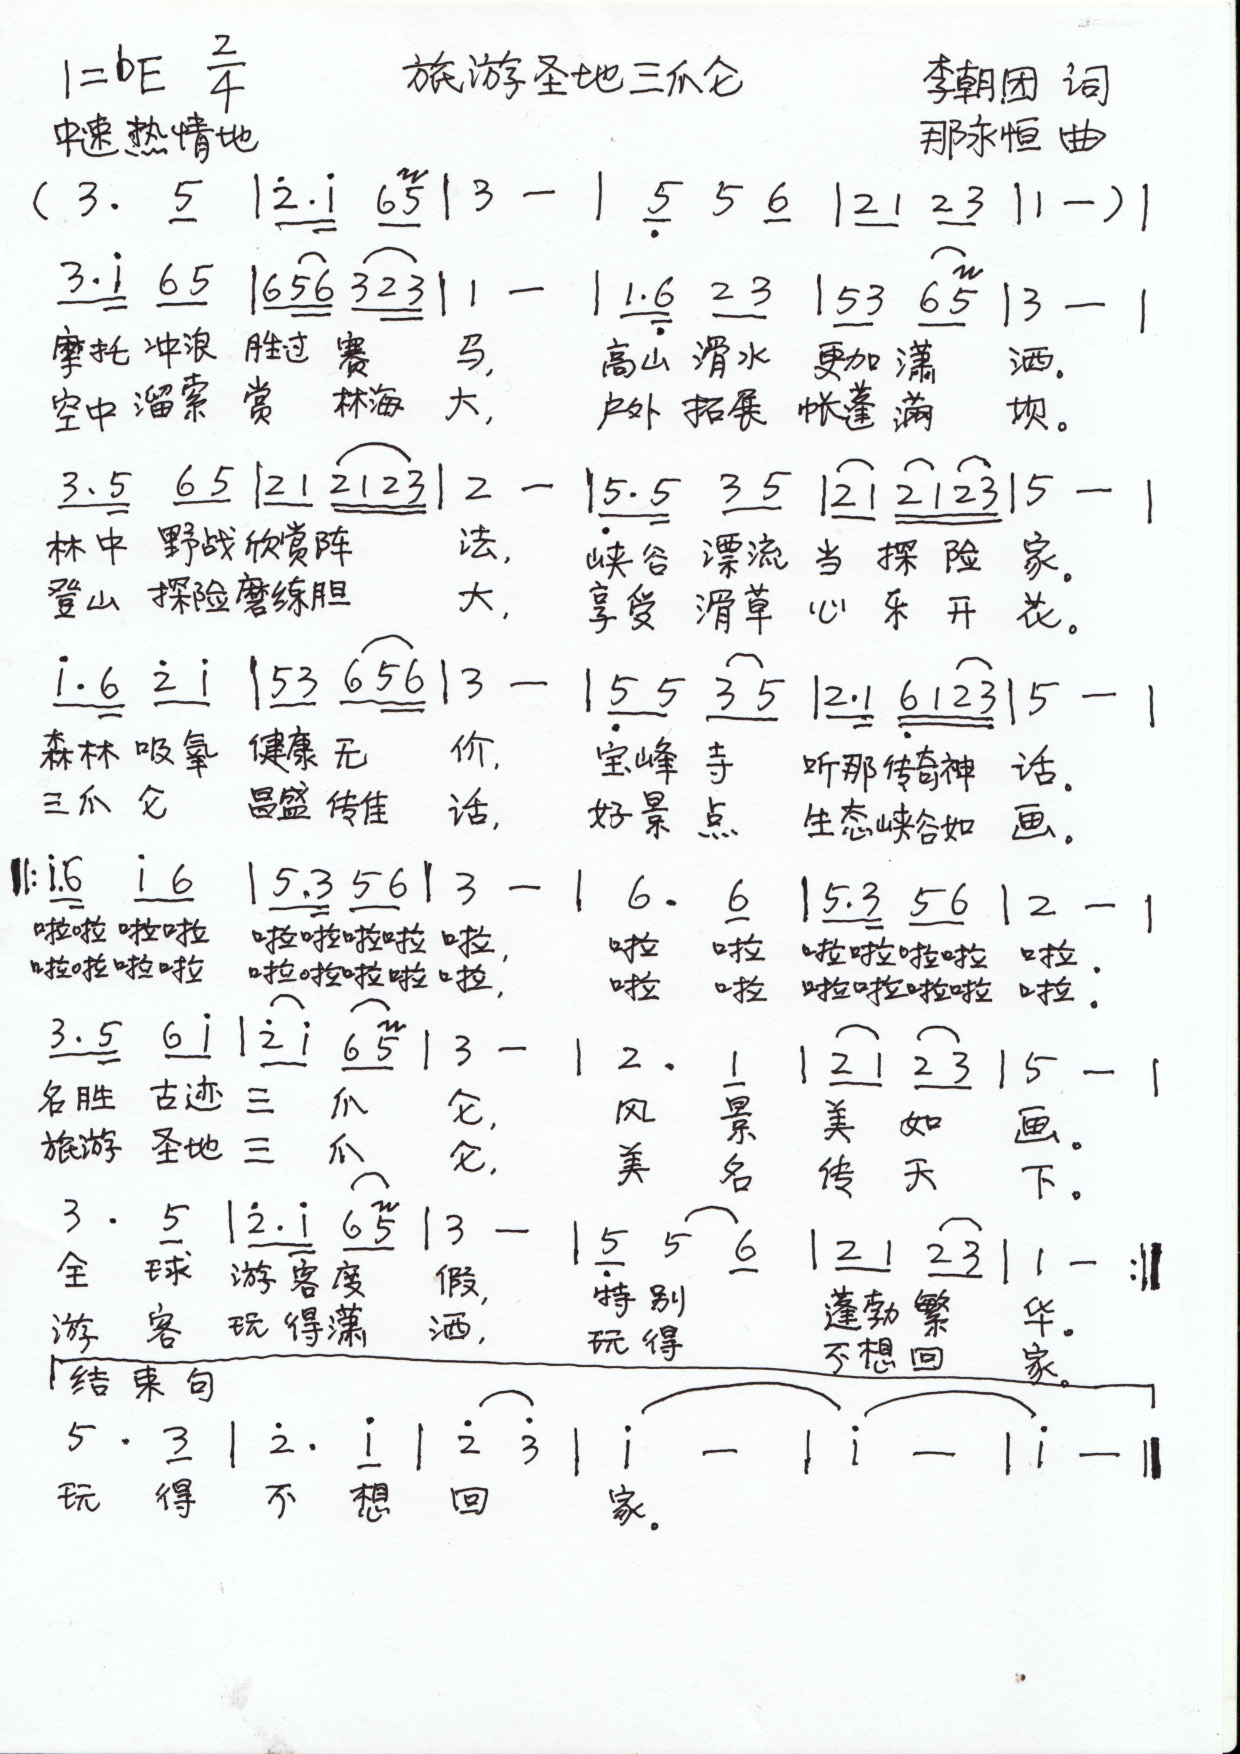 1=bE 2/4 旅游圣地三爪仑 李朝团 词
中速热情地 那永恒 曲
( 3. 5 | 2.1 65 | 3 — | 5 5 6 | 21 23 | 1 — ) |
3.1 65 | 656 323 | 1 — | 1.6 23 | 53 65 | 3 — |
摩托 冲浪 胜过 赛 马, 高山 滑水 更加 潇 洒。
空中 溜索 赏 林海 大, 户外 拓展 帐蓬 满 坝。
3.5 65 | 21 2123 | 2 — | 5.5 35 | 21 2123 | 5 — |
林中 野战 欣赏 阵 法, 峡谷 漂流 当 探 险 家。
登山 探险 磨练 胆 大, 享受 滑草 心 乐 开 花。
1.6 21 | 53 656 | 3 — | 55 35 | 2.1 6123 | 5 — |
森林 吸氧 健康 无 价, 宝峰 寺 听那 传奇神 话。
三爪 仑 昌盛 传佳 话, 好景 点 生态 峡谷如 画。
‖: 1.6 16 | 5.3 56 | 3 — | 6. 6 | 5.3 56 | 2 — |
啦啦 啦啦 啦啦啦啦 啦, 啦 啦 啦啦啦啦 啦.
啦啦 啦啦 啦啦啦啦 啦, 啦 啦 啦啦啦啦 啦.
3.5 61 | 21 65 | 3 — | 2. 1 | 21 23 | 5 — |
名胜 古迹 三 爪 仑, 风 景 美 如 画。
旅游 圣地 三 爪 仑, 美 名 传 天 下。
3. 5 | 2.1 65 | 3 — | 5 5 6 | 21 23 | 1 — :‖
全 球 游客度 假, 特 别 蓬勃 繁 华。
游 客 玩得潇 洒, 玩 得 不想 回 家。
结束句
5. 3 | 2. 1 | 2 3 | 1 — | 1 — | 1 — ‖
玩 得 不 想 回 家。